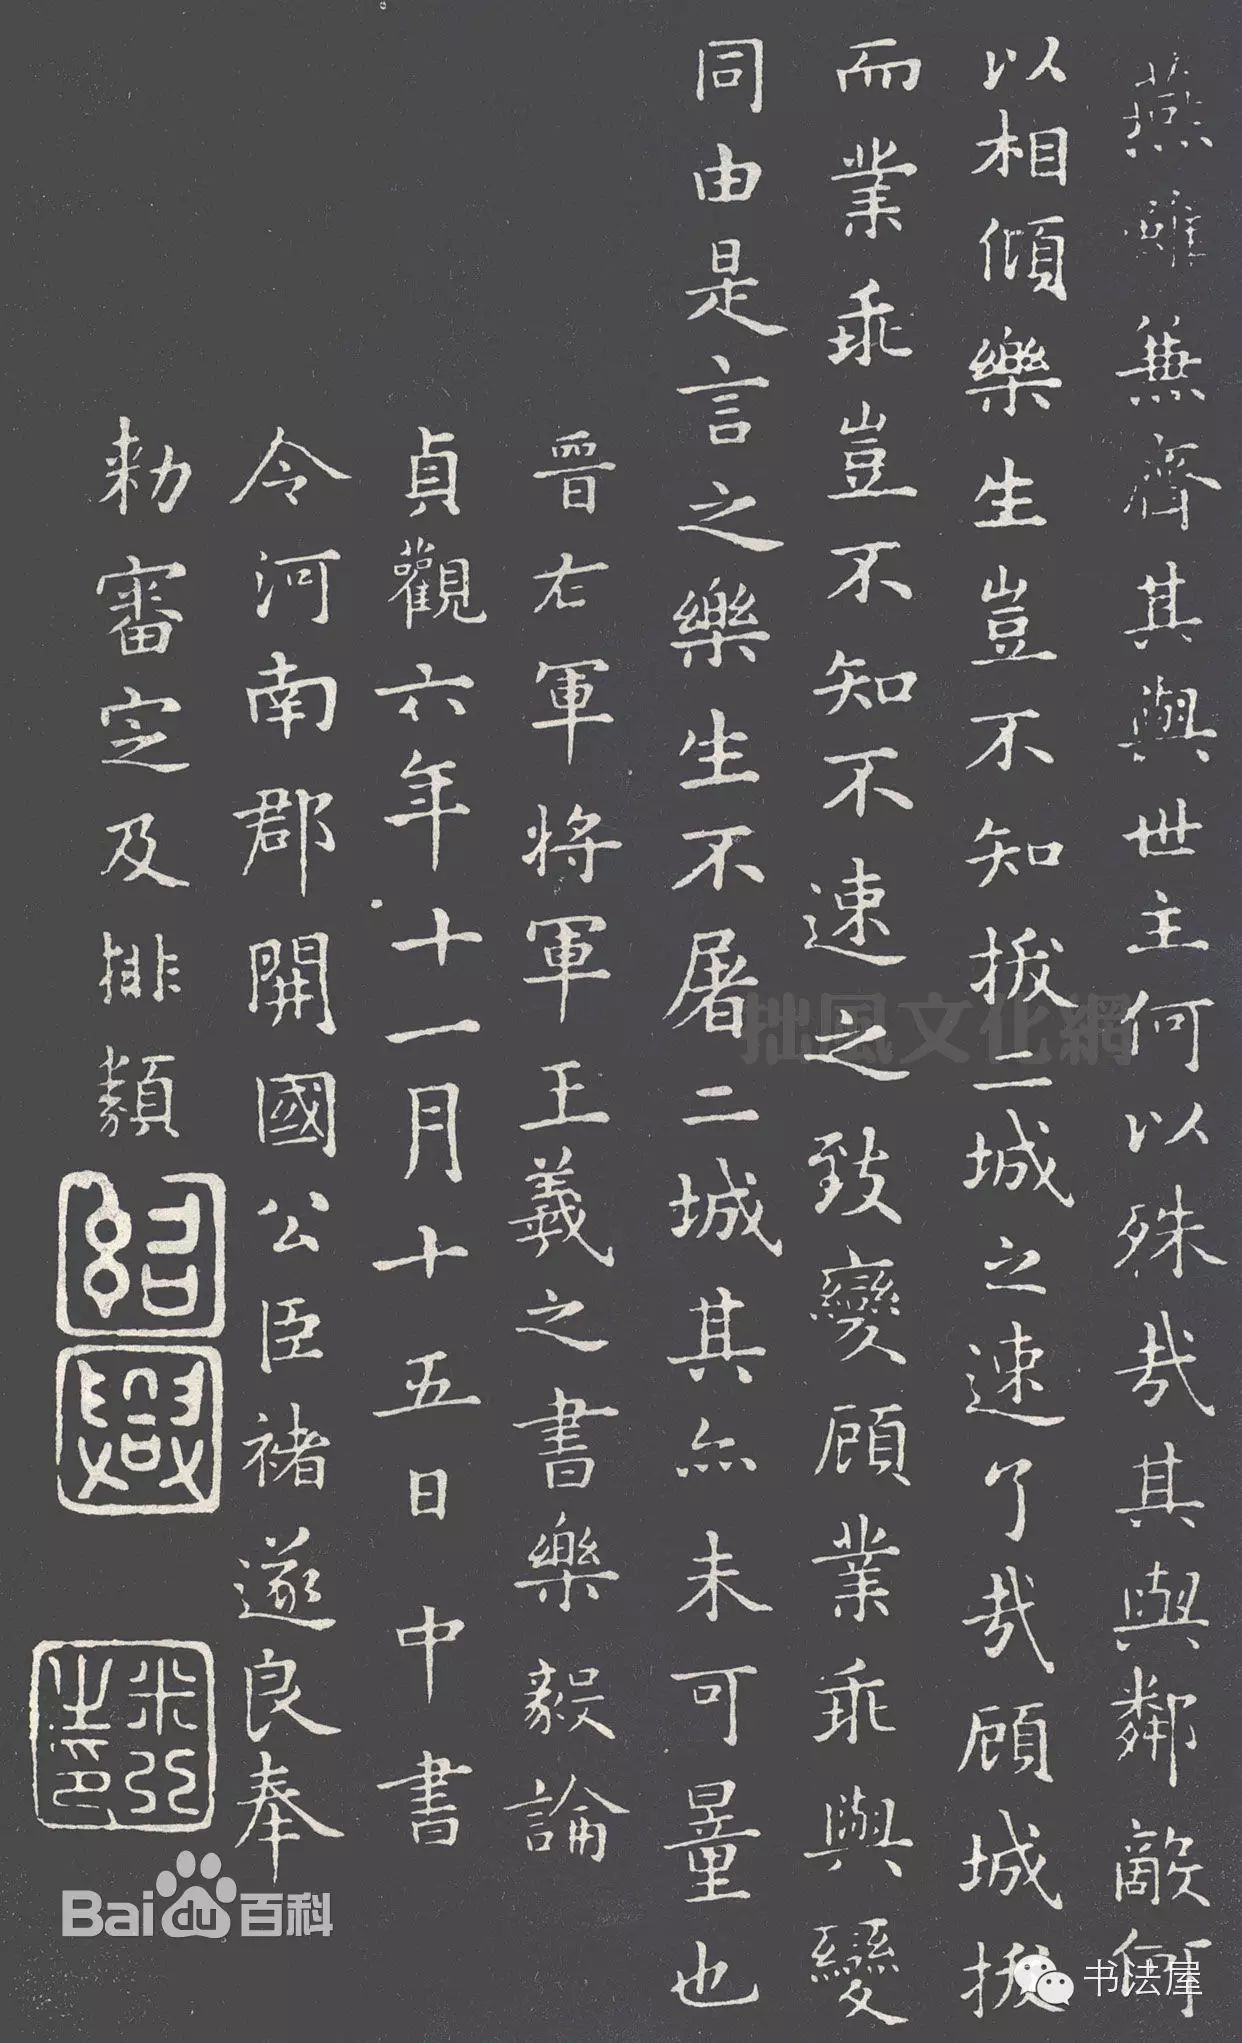 燕雖兼齊其與世主何以殊哉其與鄰敵何
以相傾樂生豈不知拔二城之速了哉顧城拔
而業乖豈不知不速之致變顧業乖與變
同由是言之樂生不屠二城其亦未可量也
晉右軍將軍王羲之書樂毅論
貞觀六年十一月十五日中書
令河南郡開國公臣褚遂良奉
勅審定及排類
紹興
米芾之印
拙風文化網
Bai du 百科
书法屋